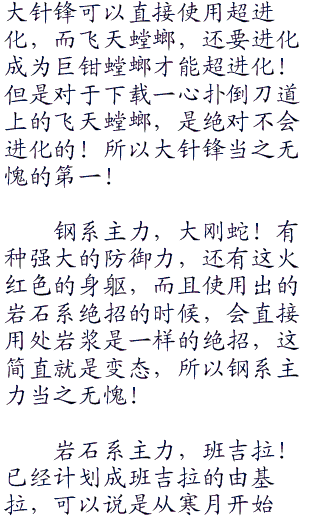 大针锋可以直接使用超进
化，而飞天螳螂，还要进化
成为巨钳螳螂才能超进化！
但是对于下载一心扑倒刀道
上的飞天螳螂，是绝对不会
进化的！所以大针锋当之无
愧的第一！
钢系主力，大刚蛇！有
种强大的防御力，还有这火
红色的身躯，而且使用出的
岩石系绝招的时候，会直接
用处岩浆是一样的绝招，这
简直就是变态，所以钢系主
力当之无愧！
岩石系主力，班吉拉！
已经计划成班吉拉的由基
拉，可以说是从寒月开始